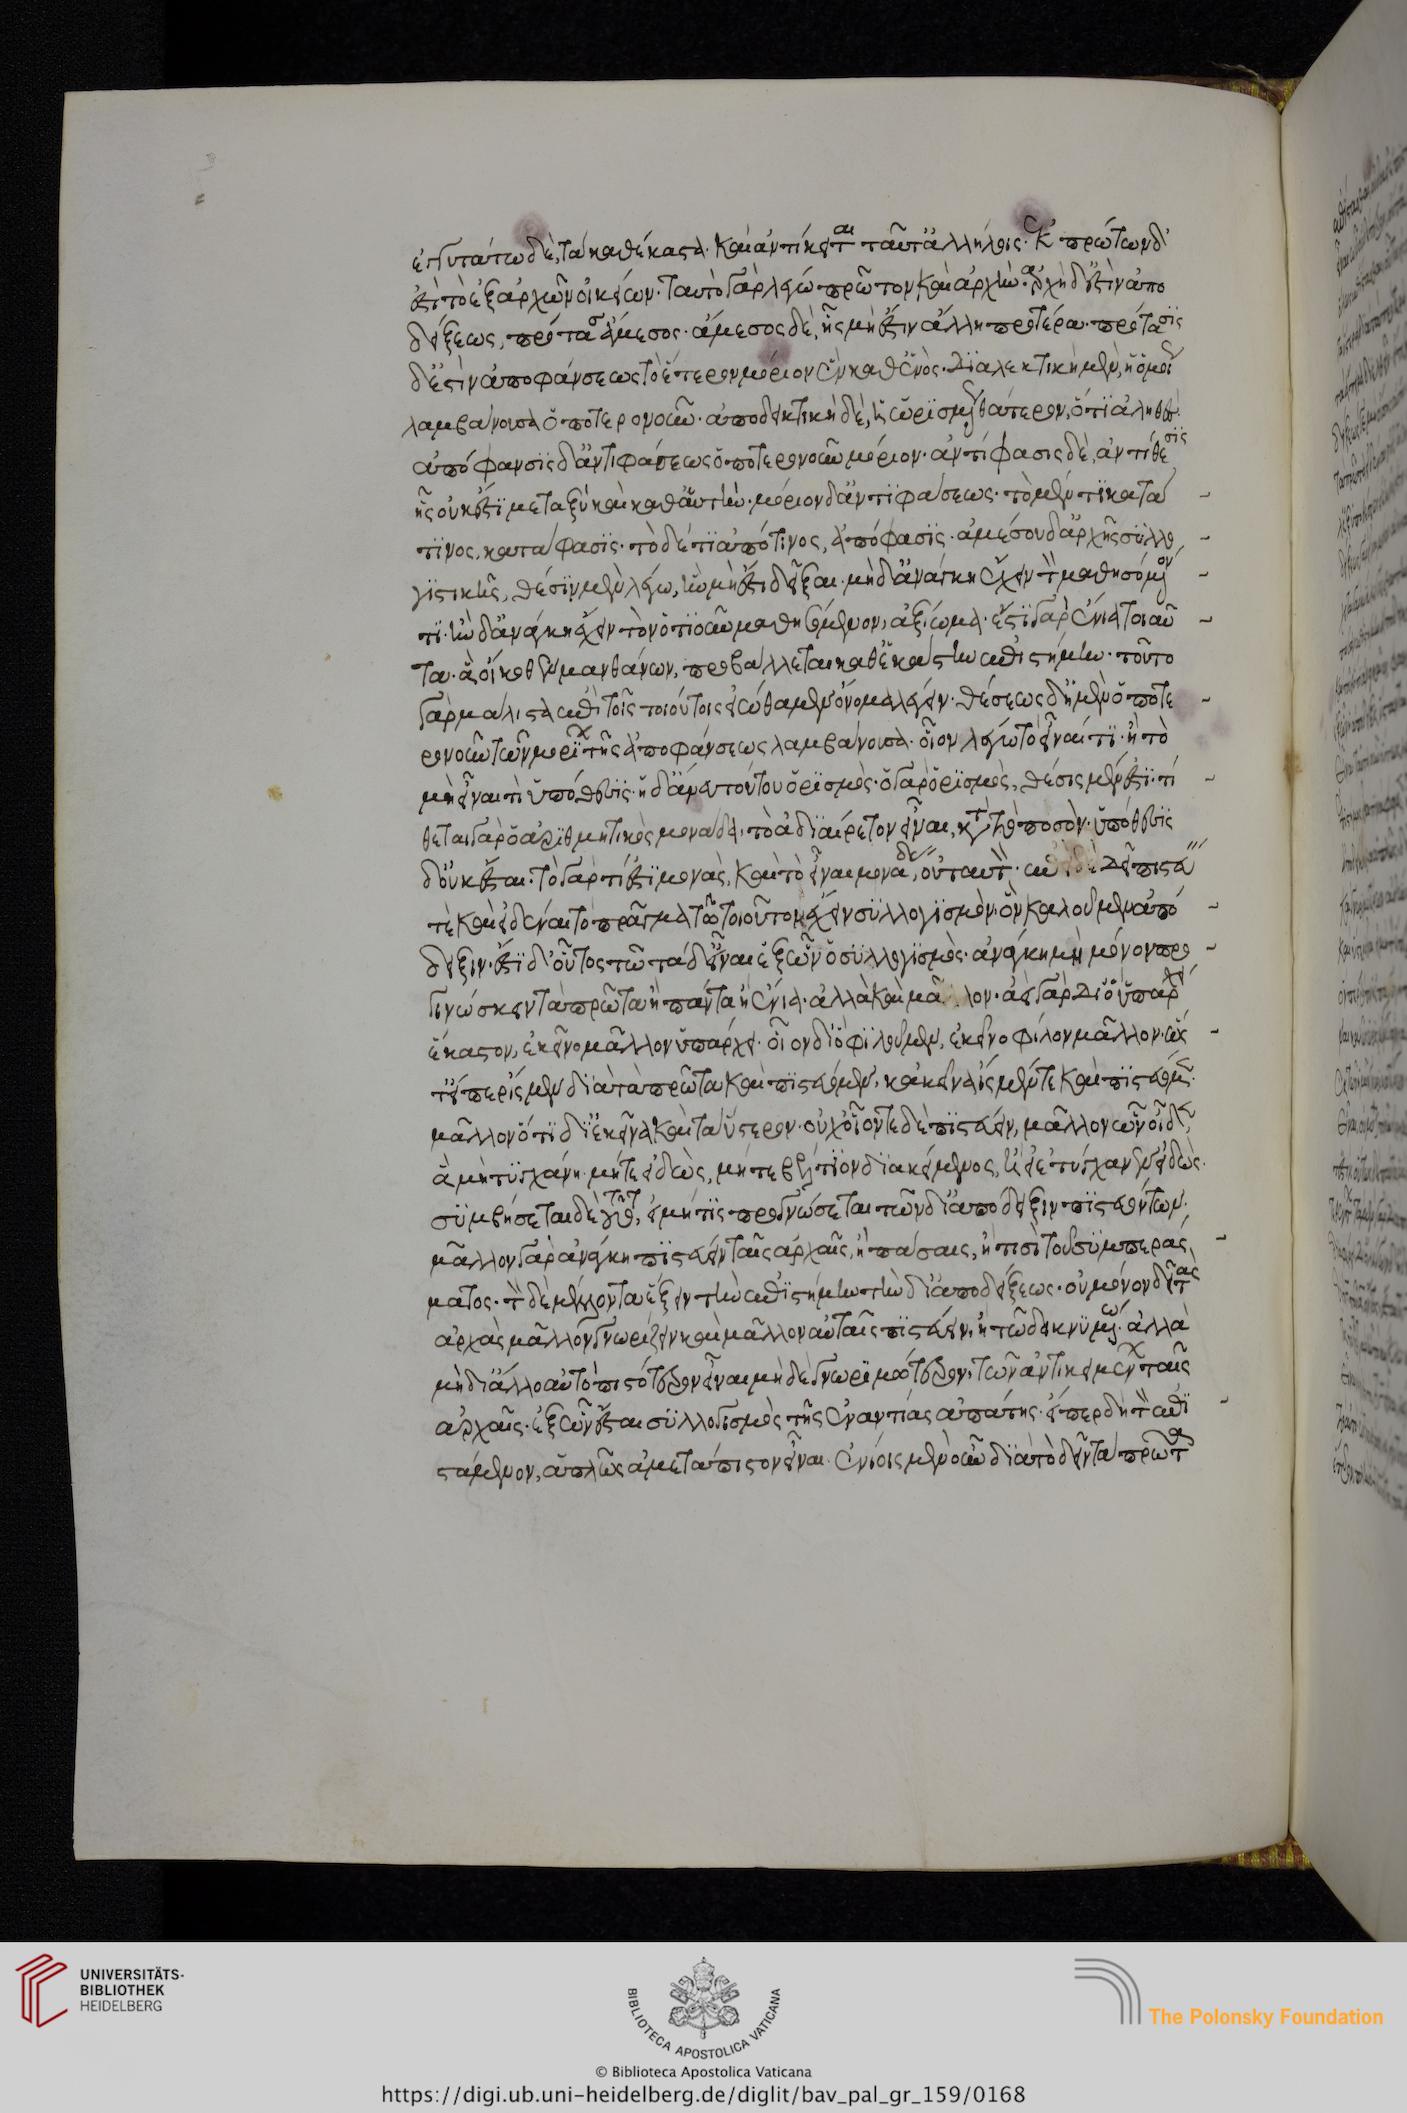 ἐγγυτάτω δὲ, τὰ καθέκαστα· καὶ ἀντίκειται ταῦτ' ἀλλήλοις· ἐκ πρώτων δ'
ἐστὶ τὸ ἐξ ἀρχῶν οἰκείων· ταυτὸ γὰρ λέγω πρῶτον καὶ ἀρχήν· ἀρχὴ δ' ἐστὶν ἀπο
δείξεως, πρότασις ἄμεσος· ἄμεσος δὲ, ἧς μὴ ἔστιν ἄλλη προτέρα· πρότασις
δ' ἐστὶν ἀποφάνσεως τὸ ἕτερον μόριον ἓν καθ' ἑνὸς· διαλεκτικὴ μὲν, ἡ ὁμοίως
λαμβάνουσα ὁποτερονοῦν· ἀποδεικτικὴ δὲ, ἡ ὡρισμένως θάτερον, ὅτι ἀληθές·
ἀπόφανσις δ' ἀντιφάσεως ὁποτερονοῦν μόριον· ἀντίφασις δὲ, ἀντίθεσις
ἧς οὐκ ἔστι μεταξὺ καὶ καθ' αὑτήν· μόριον δ' ἀντιφάσεως· τὸ μὲν τὶ κατά
τινος, κατάφασις· τὸ δέ τι ἀπό τινος, ἀπόφασις· ἀμέσου δ' ἀρχῆς συλλο
γιστικῆς, θέσιν μὲν λέγω, ἣν μὴ ἔστι δεῖξαι· μὴ δ' ἀνάγκη ἔχειν τὸν μαθησόμενόν
τι· ἣν δ' ἀνάγκη ἔχειν τὸν ὁτιοῦν μαθησόμενον, ἀξίωμα· ἔστι γὰρ ἔνια τοιαῦ
τα· ἃ οἴκοθεν μανθάνων, προβάλλεται καθ' ἑκάστην ἐπιστήμην· τοῦτο
γὰρ μάλιστα ἐπὶ τοῖς τοιούτοις εἰώθαμεν ὄνομα λέγειν· θέσεως δ' ἡ μὲν ὁποτε
ρονοῦν τῶν μορίων τῆς ἀποφάνσεως λαμβάνουσα· οἷον λέγω τὸ εἶναί τι· ἢ τὸ
μὴ εἶναί τι ὑπόθεσις· ἡ δ' ἄνευ τούτου ὁρισμὸς· ὁ γὰρ ὁρισμὸς, θέσις μέν ἐστι· τί
θεται γὰρ ὁ ἀριθμητικὸς μονάδα· τὸ ἀδιαίρετον εἶναι, κατὰ τὸ ποσὸν· ὑπόθεσις
δ' οὐκ ἔσται· τὸ γὰρ τί ἐστι μονὰς, καὶ τὸ εἶναι μονάδα, οὐ ταυτὸν· ἐπεὶ δὲ δεῖ πιστεύειν
τὲ καὶ εἰδέναι τὸ πρᾶγμα τῷ τοιοῦτον ἔχειν συλλογισμὸν· ὃν καλοῦμεν ἀπό
δειξιν· ἔστι δ' οὗτος τῷ τάδ' εἶναι ἐξ ὧν ὁ συλλογισμὸς· ἀνάγκη μὴ μόνον προ
γινώσκειν τὰ πρῶτα ἢ πάντα ἢ ἔνια· ἀλλὰ καὶ μᾶλλον· ἀεὶ γὰρ δι' ὃ ὑπάρχει
ἕκαστον, ἐκεῖνο μᾶλλον ὑπάρχει· οἷον δι' ὃ φιλοῦμεν, ἐκεῖνο φίλον μᾶλλον· ὥς
τ' εἴπερ ἴσμεν διὰ τὰ πρῶτα καὶ πιστεύομεν, κἀκεῖνα ἴσμέν τε καὶ πιστεύομεν
μᾶλλον ὅτι δι' ἐκεῖνα καὶ τὰ ὕστερον· οὐχ οἷόν τε δὲ πιστεύειν, μᾶλλον ὧν οἶδεν,
ἃ μὴ τυγχάνῃ μήτε εἰδὼς, μήτε βέλτιον διακείμενος, ἢ εἰ ἐτύγχανεν εἰδὼς·
συμβήσεται δὲ τοῦτο, εἰ μή τις προγνώσεται τῶν δι' ἀπόδειξιν πιστευόντων·
μᾶλλον γὰρ ἀνάγκη πιστεύειν ταῖς ἀρχαῖς, ἢ πάσαις, ἢ τισὶ τοῦ συμπεράς
ματος· τὸν δὲ μέλλοντα ἕξειν τὴν ἐπιστήμην τὴν δι' ἀποδείξεως· οὐ μόνον δεῖ τὰς
ἀρχὰς μᾶλλον γνωρίζειν καὶ μᾶλλον αὐταῖς πιστεύειν, ἢ τῷ δεικνυμένῳ· ἀλλὰ
μὴ δ' ἄλλο αὐτὸ πιστότερον εἶναι μὴ δὲ γνωριμώτερον, τῶν ἀντικειμένων ταῖς
ἀρχαῖς· ἐξ ὧν ἔσται συλλογισμὸς τῆς ἐναντίας ἀπάτης· εἴπερ δεῖ τὸν ἐπι
στάμενον, ἁπλῶς ἀμετάπιστον εἶναι· ἐνίοις μὲν οὖν διὰ τὸ δεῖν τὰ πρῶτα
UNIVERSITÄTS-
BIBLIOTHEK
HEIDELBERG
BIBLIOTECA APOSTOLICA VATICANA
The Polonsky Foundation
© Biblioteca Apostolica Vaticana
https://digi.ub.uni-heidelberg.de/diglit/bav_pal_gr_159/0168